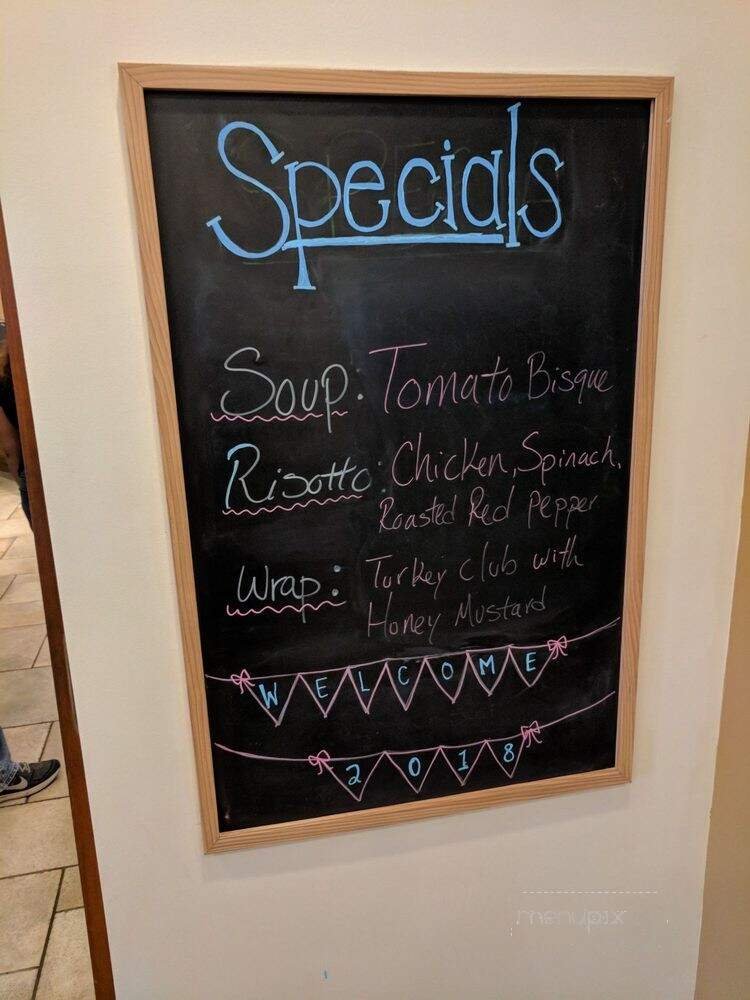 Specials
Soup: Tomato Bisque
Risotto: Chicken, Spinach,
Roasted Red Pepper
Wrap: Turkey club with
Honey Mustard
WELCOME
2018
menupix